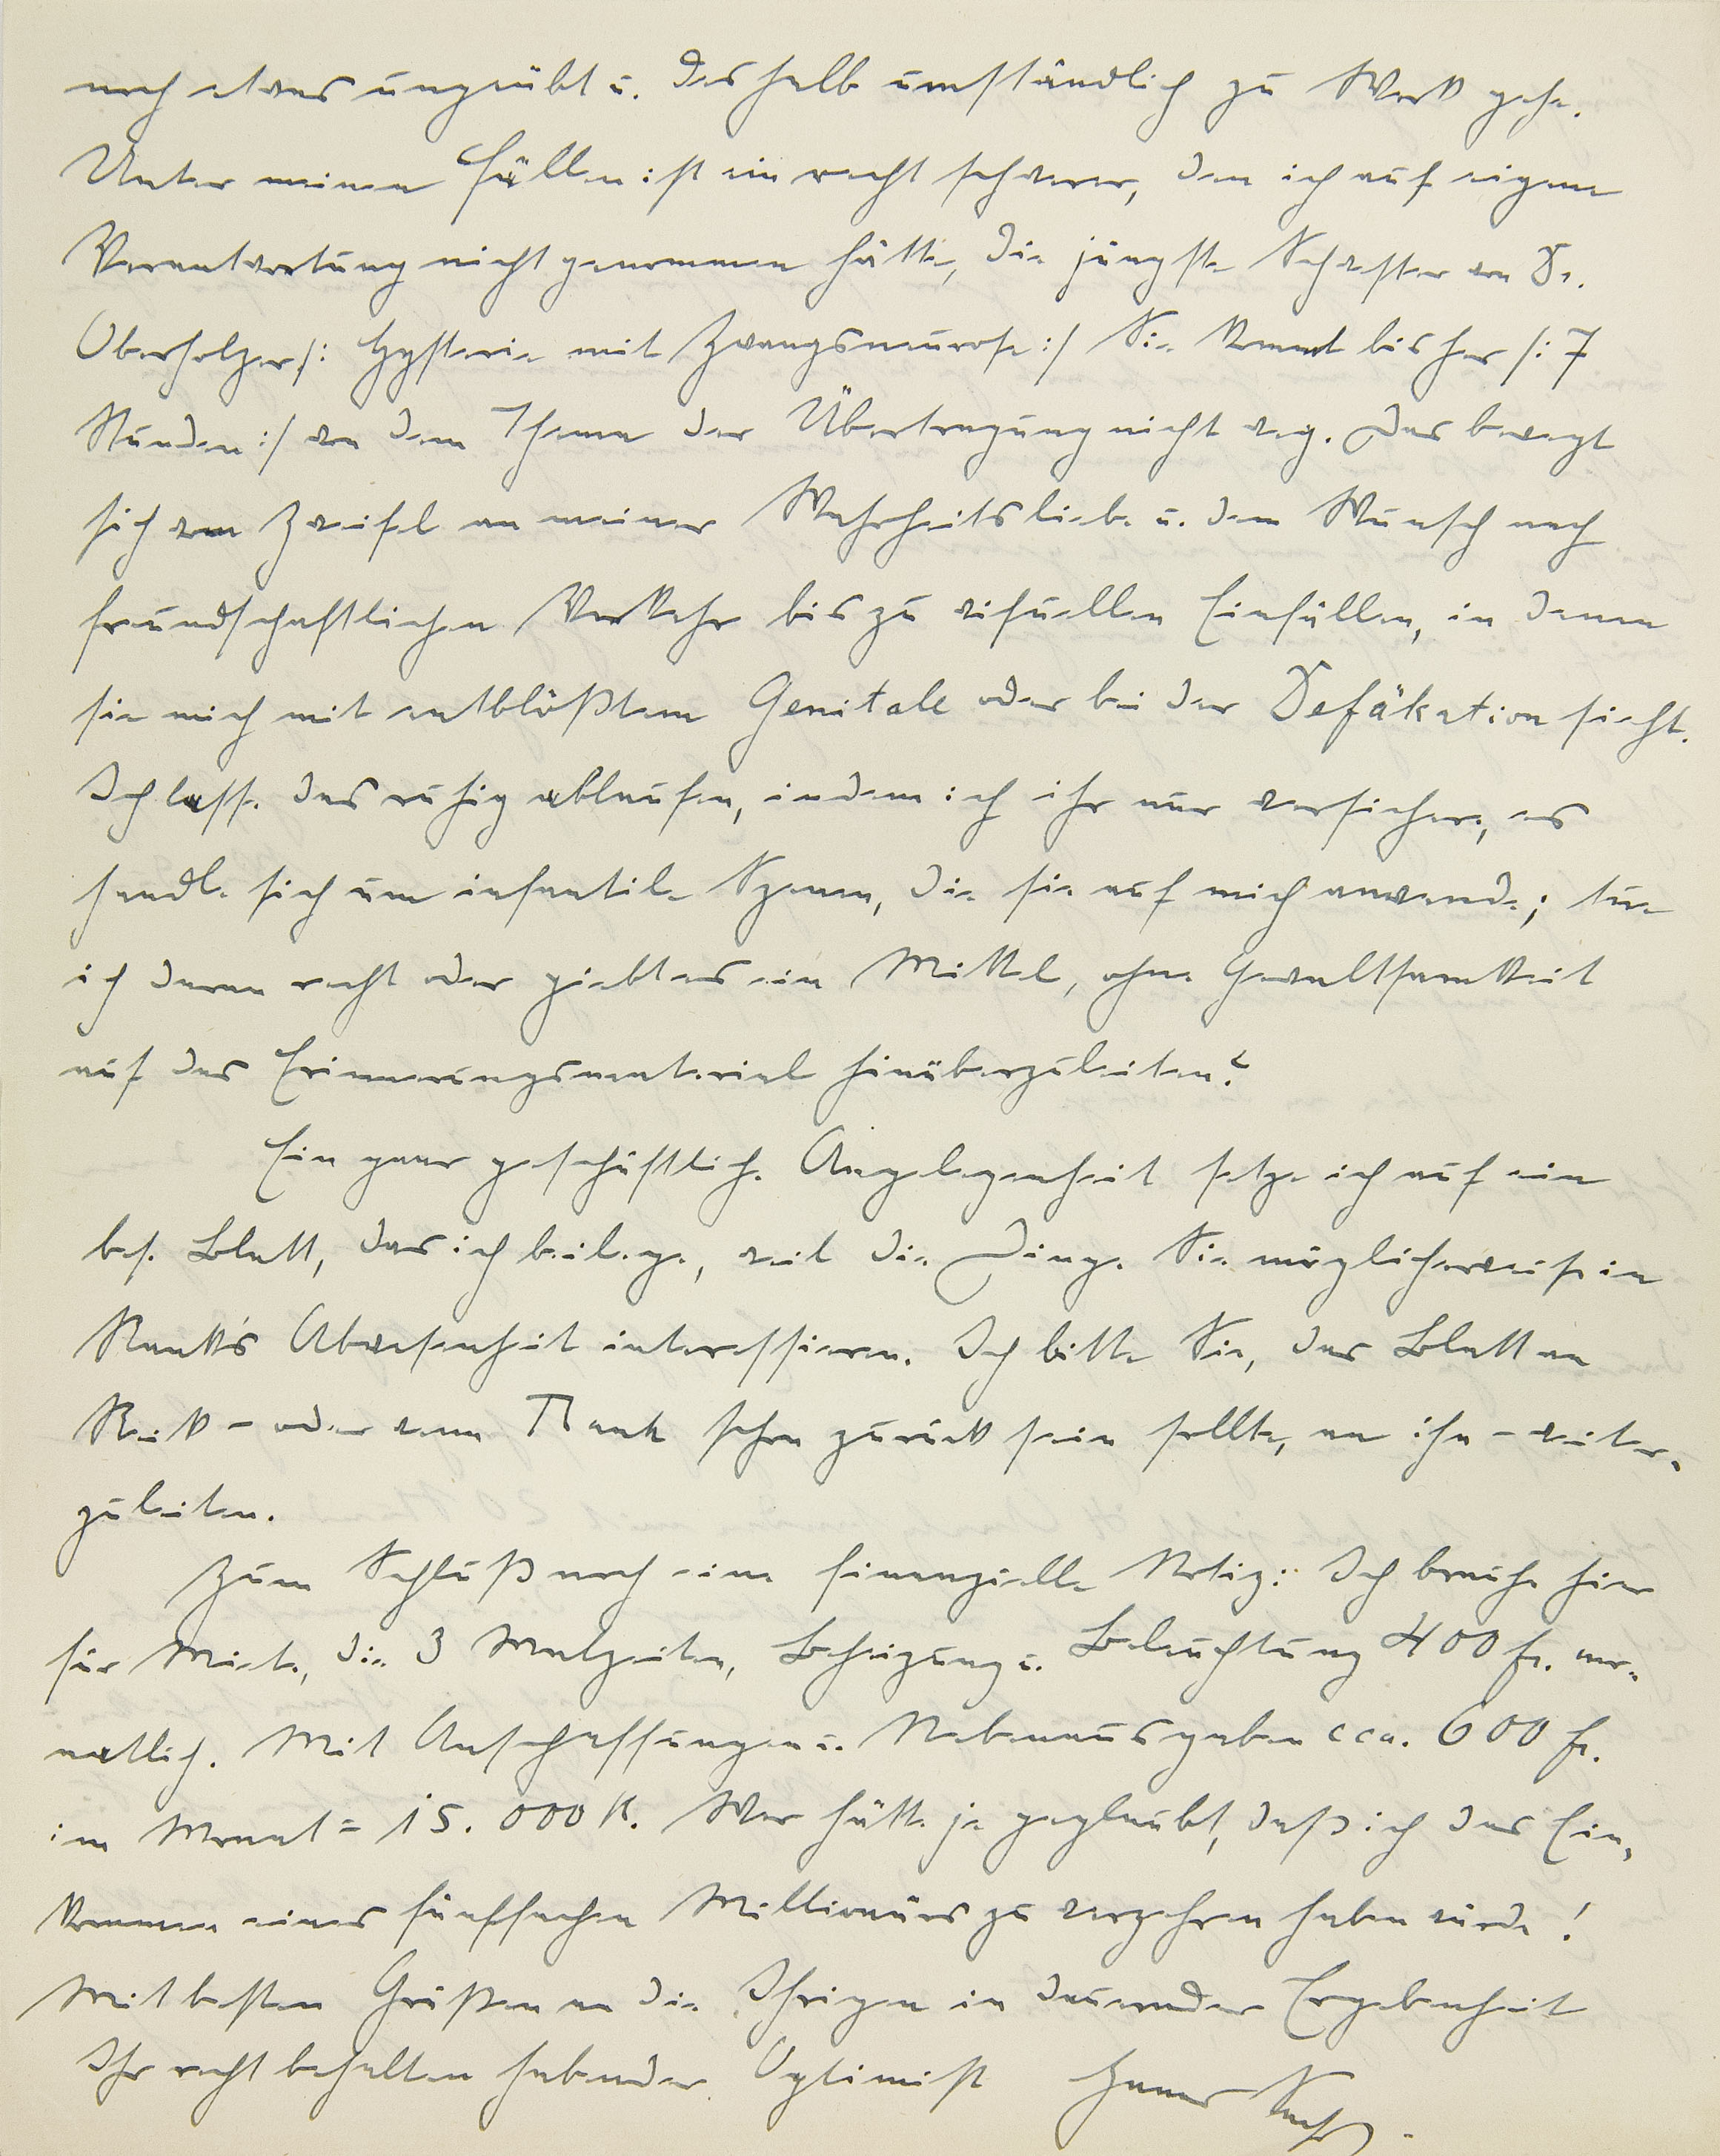 noch etwas ungeübt u. deshalb umständlich zu Werk gehe.
Unter meinen Fällen ist ein recht schwerer, den ich auf eigene
Verantwortung nicht genommen hätte, die jüngste Schwester von Dr.
Oberholzer /: Hysterie mit Zwangsneurose :/ Sie kommt bisher /: 7
Stunden :/ von dem Thema der Übertragung nicht weg. Das bewegt
sich vom Zweifel an meiner Wahrheitsliebe u. dem Wunsch nach
freundschaftlichen Verkehr bis zu visuellen Einfällen, in denen
sie mich mit entblößtem Genitale oder bei der Defäkation sieht.
Ich lasse das ruhig ablaufen, indem ich ihr nur versichere, es
handle sich um infantile Szenen, die sie auf mich anwende; tue
ich daran recht oder giebt es ein Mittel, ohne Gewaltsamkeit
auf das Erinnerungsmaterial hinüberzuleiten?
Ein paar geschäftliche Angelegenheit setze ich auf ein
bes. Blatt, das ich beilege, weil die Dinge Sie möglicherweise in
Rank's Abwesenheit interessieren. Ich bitte Sie, das Blatt an
Reik – oder wenn Rank schon zurück sein sollte, an ihn – weiter-
zuleiten.
Zum Schluß noch eine finanzielle Notiz: Ich brauche hier
für Miete, die 3 Malzeiten, Beheizung u. Beleuchtung 400 fr. mo-
natlich. Mit Anschaffungen u. Nebenausgaben cca. 600 fr.
im Monat = 15.000 K. Wer hätte je geglaubt, daß ich das Ein-
kommen eines fünffachen Millionärs zu verzehren haben würde!
Mit besten Grüßen an die Ihrigen in dauernder Ergebenheit
Ihr recht behalten habender Optimist Hanns Sachs.